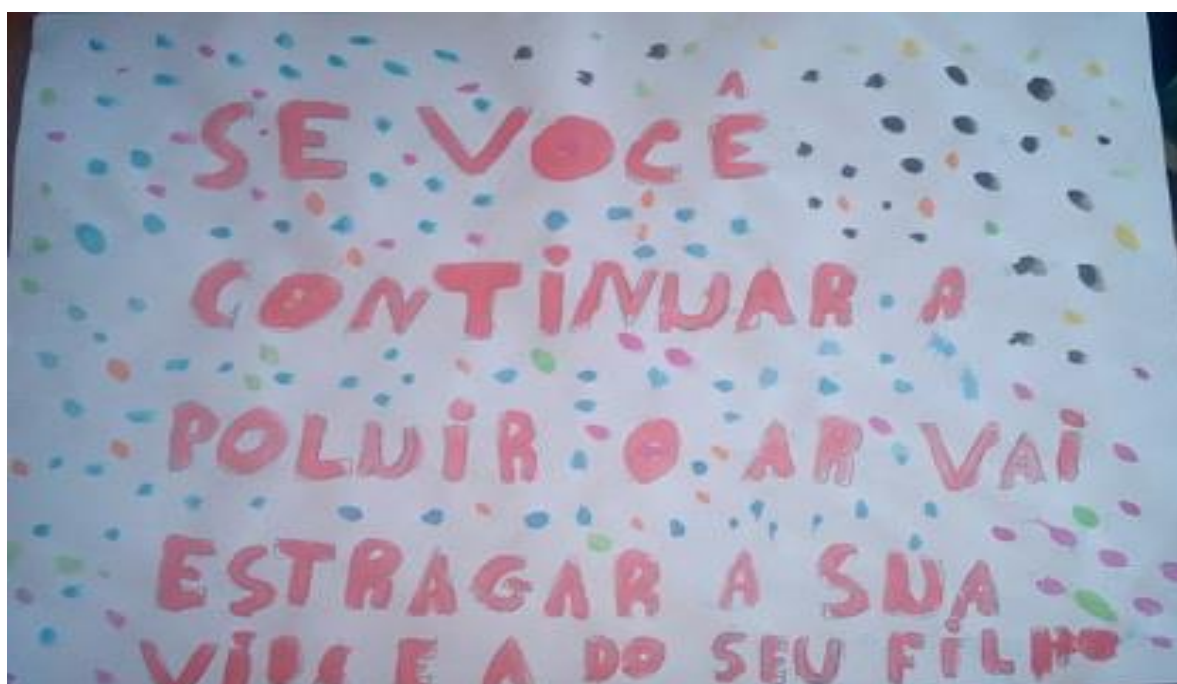 SE VOCÊ
CONTINUAR A
POLUIR O AR VAI
ESTRAGAR A SUA
VIDA E A DO SEU FILHO